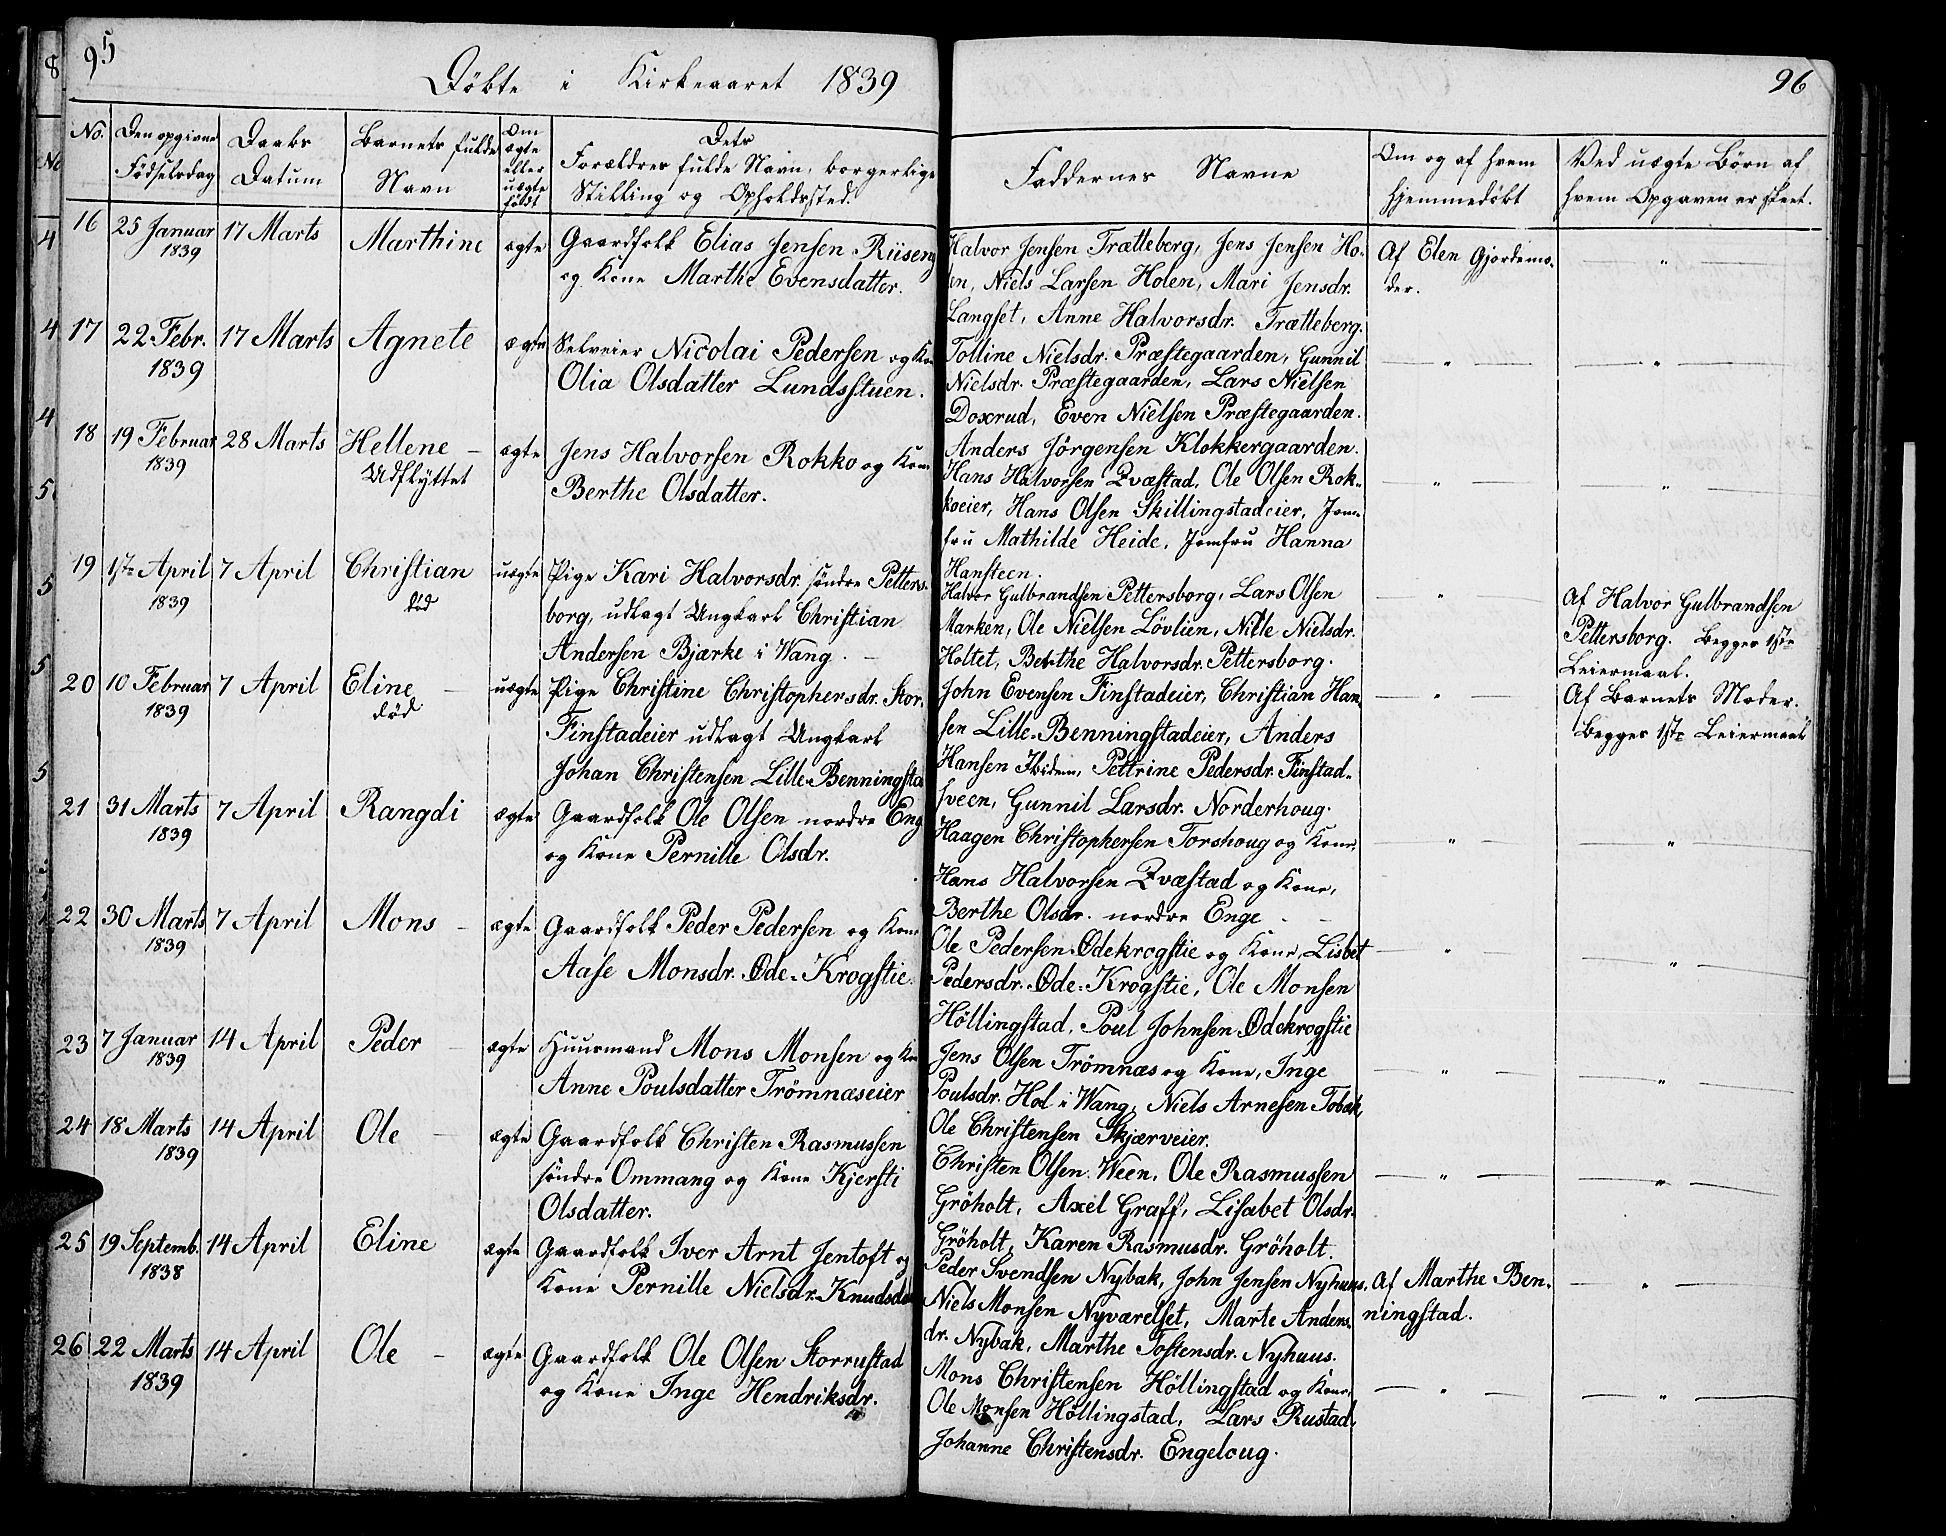 95
Döbte i Kirkeaaret 1839
No.
Den opgivne
Födselsdag
Daabs
Datum
Barnets fulde
Navn
Om
ægte
eller
uægte
født
Dets
Forældres fulde Navn, borgerlige
Stilling og Opholdssted.
16
25 Januar
1839
17 Marts
Marthine
ægte
Gaardfolk Elias Jensen Riiseng
og Kone Marthe Evensdatter.
17
22 Febr.
1839
17 Marts
Agnete
ægte
Selveier Nicolai Pedersen og Kone
Olia Olsdatter Lundsstuen.
18
19 Februar
1839
28 Marts
Hellene
Udflyttet
ægte
Jens Halvorsen Rokko og Kone
Berthe Olsdatter.
19
1ste April
1839
7 April
Christian
död
uægte
Pige Kari Halvorsdr. söndre Petters-
borg, udlagt Ungkarl Christian
Andersen Bjærke i Wang.
20
10 Februar
1839
7 April
Eline
död
uægte
Pige Christine Christophersdr. Stor
Finstadeier udlagt Ungkarl
Johan Christensen Lille-Benningsta
21
31 Marts
1839
7 April
Rangdi
ægte
Gaardfolk Ole Olsen nordre Eng
og Kone Pernille Olsdr.
22
30 Marts
1839
7 April
Mons
ægte
Gaardfolk Peder Pedersen og Kone
Aase Monsdr. Öde-Krogstie.
23
7 Januar
1839
14 April
Peder
ægte
Huusmand Mons Monsen og Kone
Anne Poulsdatter Trömnæseier
24
18 Marts
1839
14 April
Ole
ægte
Gaardfolk Christen Rasmussen
söndre Ommang og Kone Kjersti
Olsdatter.
25
19 Septemb.
1838
14 April
Eline
ægte
Gaardfolk Iver Arnt Jentoft og
Kone Pernille Nielsdr. Knudsda
26
22 Marts
1839
14 April
Ole
ægte
Gaardfolk Ole Olsen Storrustad
og Kone Inge Hendriksdr.
96
Faddernes Navne
Om og af hvem
hjemmedöbt
Ved uægte Börn af
hvem Opgaven er skeet.
Halvor Jensen Trætteberg, Jens Jensen Ho-
len, Niels Larsen Holen, Mari Jensdr.
Langset, Anne Halvorsdr. Trætteberg.
Af Elen Gjordemo-
der.
Tolline Nielsdr. Præstegaarden, Gunnil
Nielsdr. Præstegaarden, Lars Nielsen
Doxrud, Even Nielsen Præstegaarden.
Anders Jörgensen Klokkergaarden.
Hans Halvorsen Qvæstad, Ole Olsen Rok-
koeier, Hans Olsen Skillingstadeier, Jom-
fru Mathilde Heide, Jomfru Hanna
Hansteen.
Halvor Gulbrandsen Pettersborg, Lars Olsen
Marken, Ole Nielsen Lövlien, Nille Nielsdr.
Holtet, Berthe Halvorsdr. Pettersborg.
Af Halvor Gulbrandsen
Pettersborg. Begges 1ste
Leiermaal.
John Evensen Finstadeier, Christian Han-
sen Lille-Benningstadeier, Anders
Hansen Ibidem, Pettrine Pedersdr. Finstad-
sveen, Gunnil Larsdr. Norderhoug.
Af Barnets Moder.
Begges 1ste Leiermaal
Haagen Christophersen Torshoug og Kone,
Hans Halvorsen Qvæstad og Kone,
Berthe Olsdr. nordre Enge
Ole Pedersen Ödekrogstie og Kone, Lisbet
Pedersdr. Öde-Krogstie, Ole Monsen
Höllingstad, Poul Johnsen Ödekrogstie
Jens Olsen Trömnæs og Kone, Inge
Poulsdr. Hol i Wang, Niels Arnesen Tobak,
Ole Christensen Skjærveier.
Christen Olsen Ween, Ole Rasmussen
Gröholt, Axel Graff, Lisabet Olsdr.
Gröholt, Karen Rasmusdr. Gröholt.
Peder Svendsen Nybak, John Jensen Nyhuus,
Niels Monsen Nyværelset, Marte Anders
dr. Nybak, Marthe Tostensdr. Nyhuus.
Af Marthe Ben-
ningstad.
Mons Christensen Höllingstad og Kone,
Ole Monsen Höllingstad, Lars Rustad,
Johanne Christensdr. Engeloug.